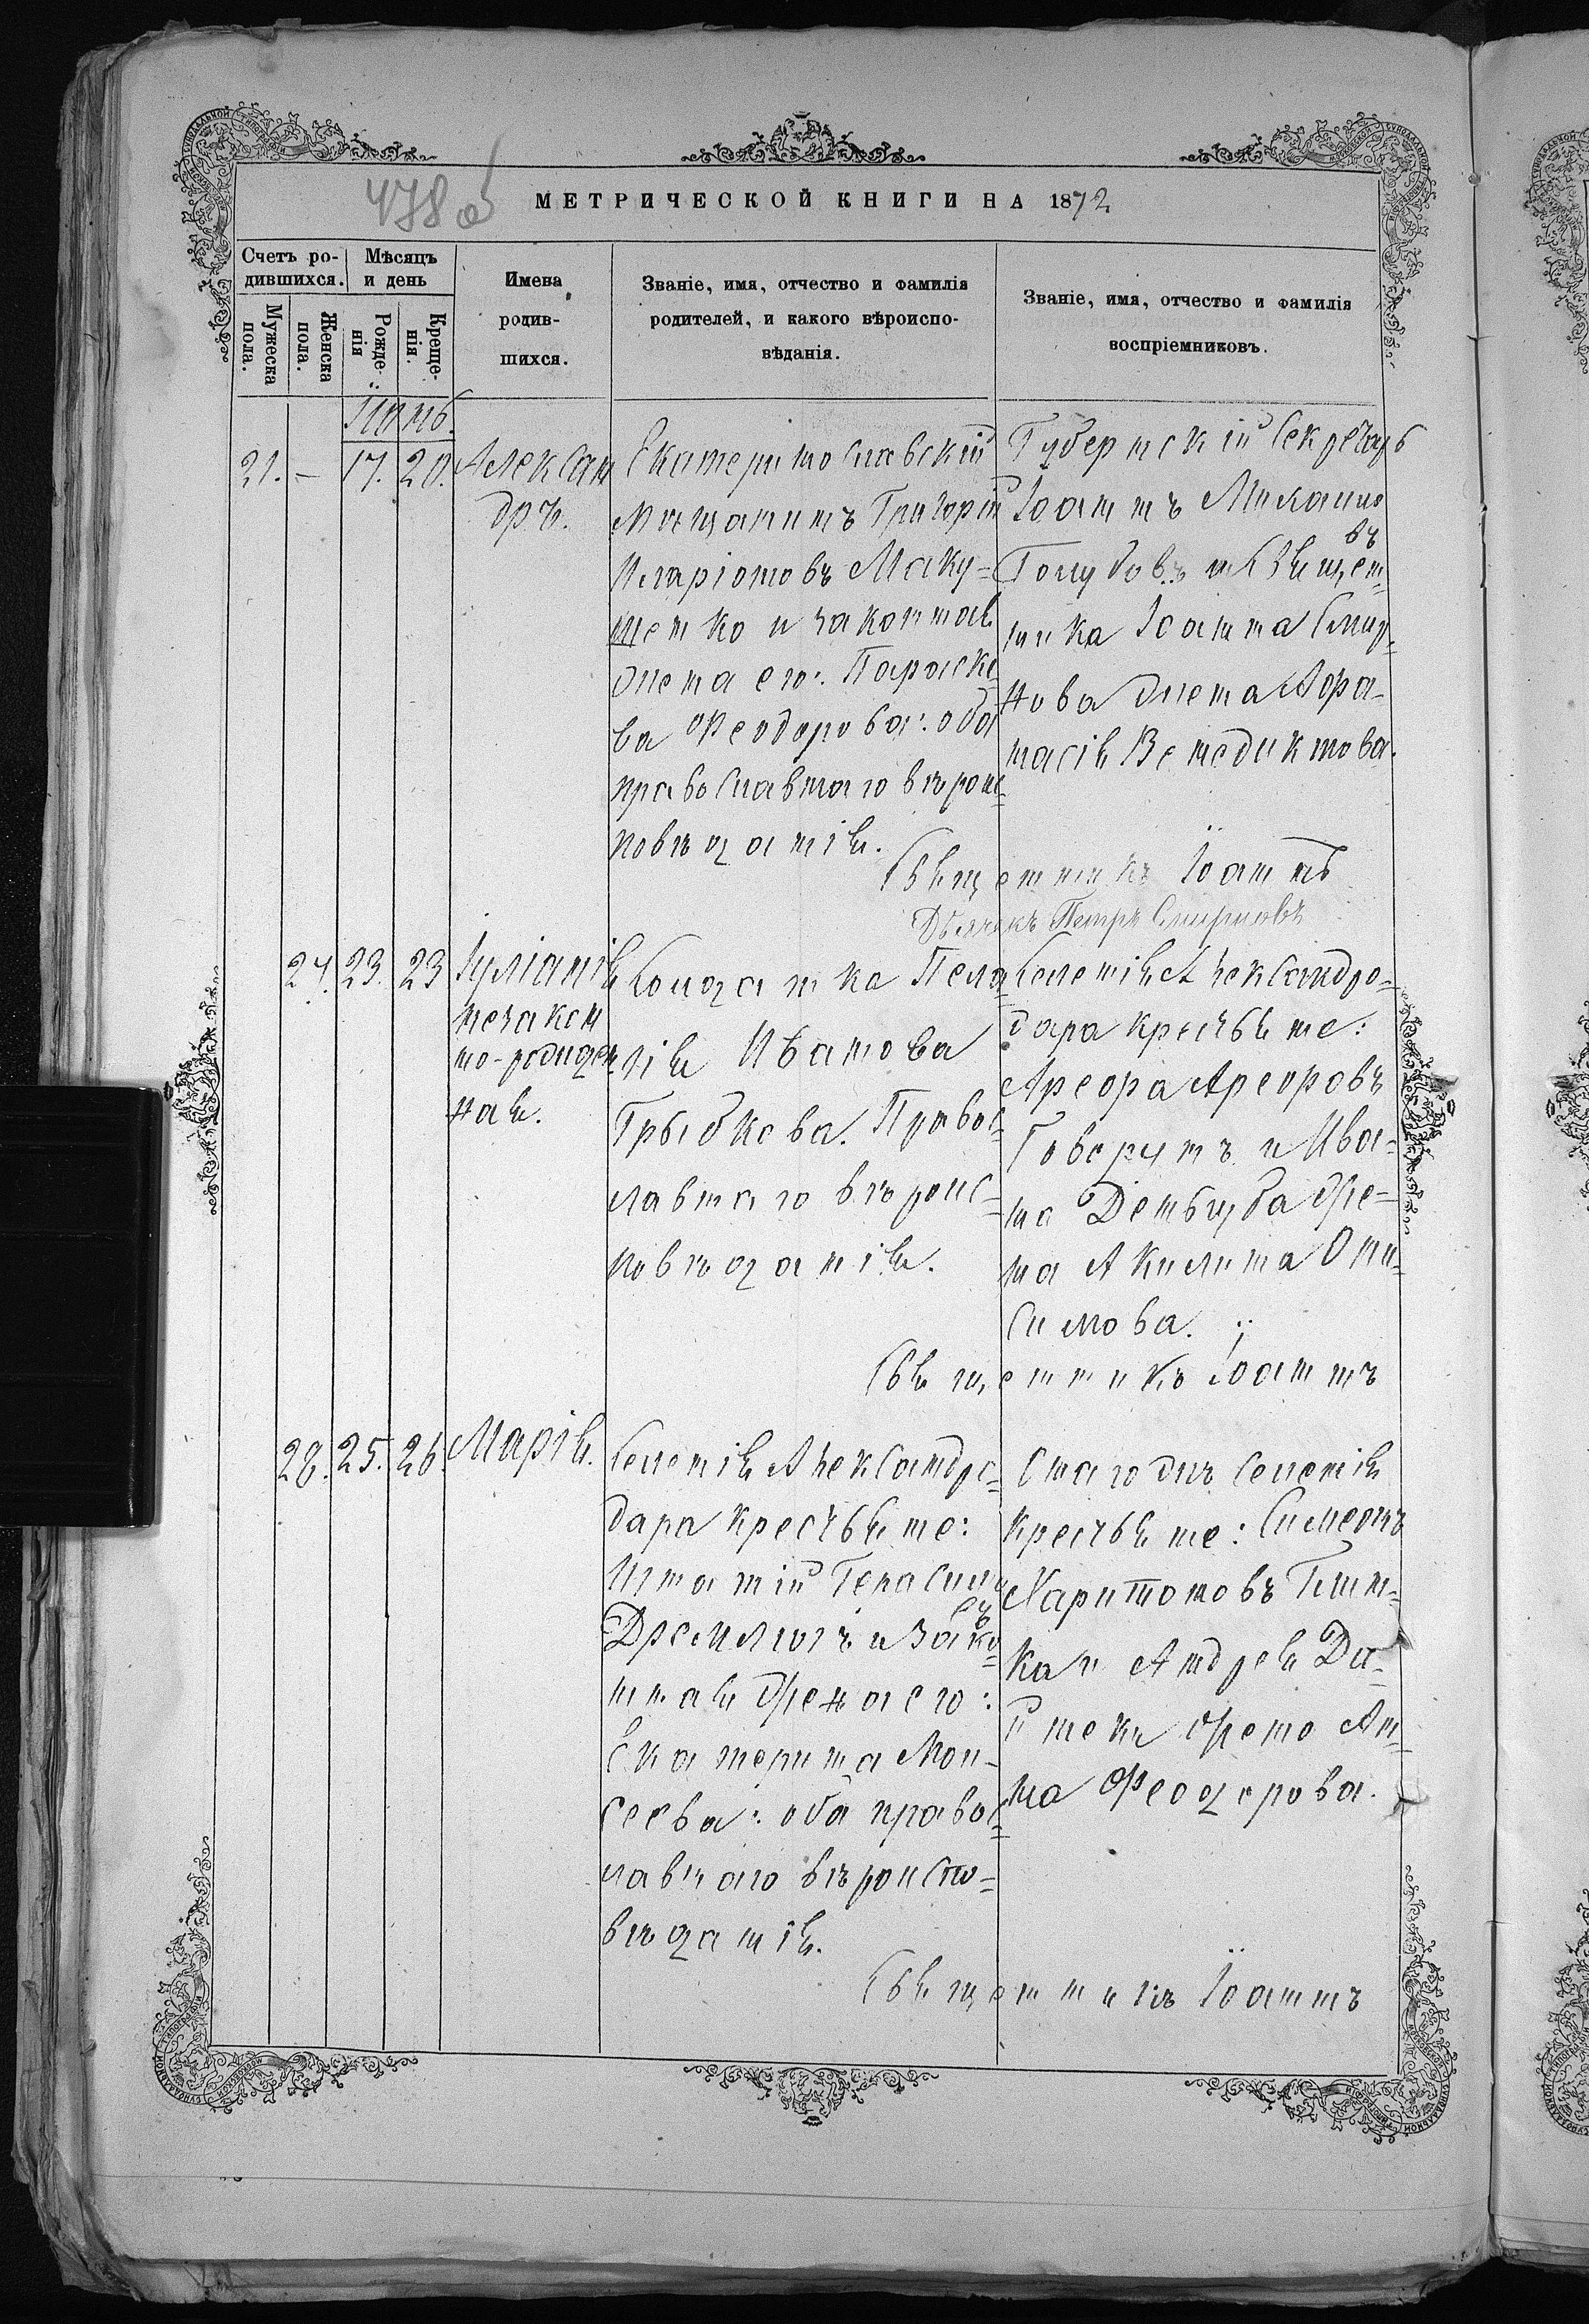 478 об
МЕТРИЧЕСКОЙ КНИГИ НА 1872
Счетъ ро-
дившихся.
Мѣсяцъ
и день
Мужеска
пола.
Женска
пола.
Рожде-
нія
Креще-
нія.
Имена
родив-
шихся.
Званіе, имя, отчество и фамилія
родителей, и какого вѣроиспо-
вѣданія.
Званіе, имя, отчество и фамилія
воспріемниковъ.
Іюнь.
21. — 17. 20.
Алексан
дръ.
Екатеринославскій
Мѣщанинъ Григорій
Иларіоновъ Маку-
шенко и законная
жена его: Параске-
ва Ѳеодорова: оба
православнаго вѣроис-
повѣданія.
Губернскій Секретарь
Іоаннъ Михаило
въ
Голубовъ и Священ-
ника Іоанна Смир-
нова жена Аѳа-
насія Венедиктова.
Священникъ Іоаннъ
Дьячекъ Петръ Смирновъ
27. 23. 23
Іуліанія
незакон
но-рожден
ная.
Солдатка Пела-
гія Иванова
Грыбкова. Правос-
лавнаго вѣроис-
повѣданія.
Селенія Александро-
дара крестьяне:
Говорунъ и Ива-
на Демьяна жена
Акилина Они-
симова.
Священникъ Іоаннъ
28. 25. 26.
Марія.
Селенія Александро-
дара крестьяне:
Игнатій Герасимо
въ
и зако-
нная жена его:
Екатерина Мои-
сеева: оба правос-
лавнаго вѣроиспо-
вѣданія.
Онаго жъ селенія
крестьяне: Симеонъ
Харитоновъ Глин-
ка и Андрея
жена Ан-
на Ѳеодорова.
Священникъ Іоаннъ